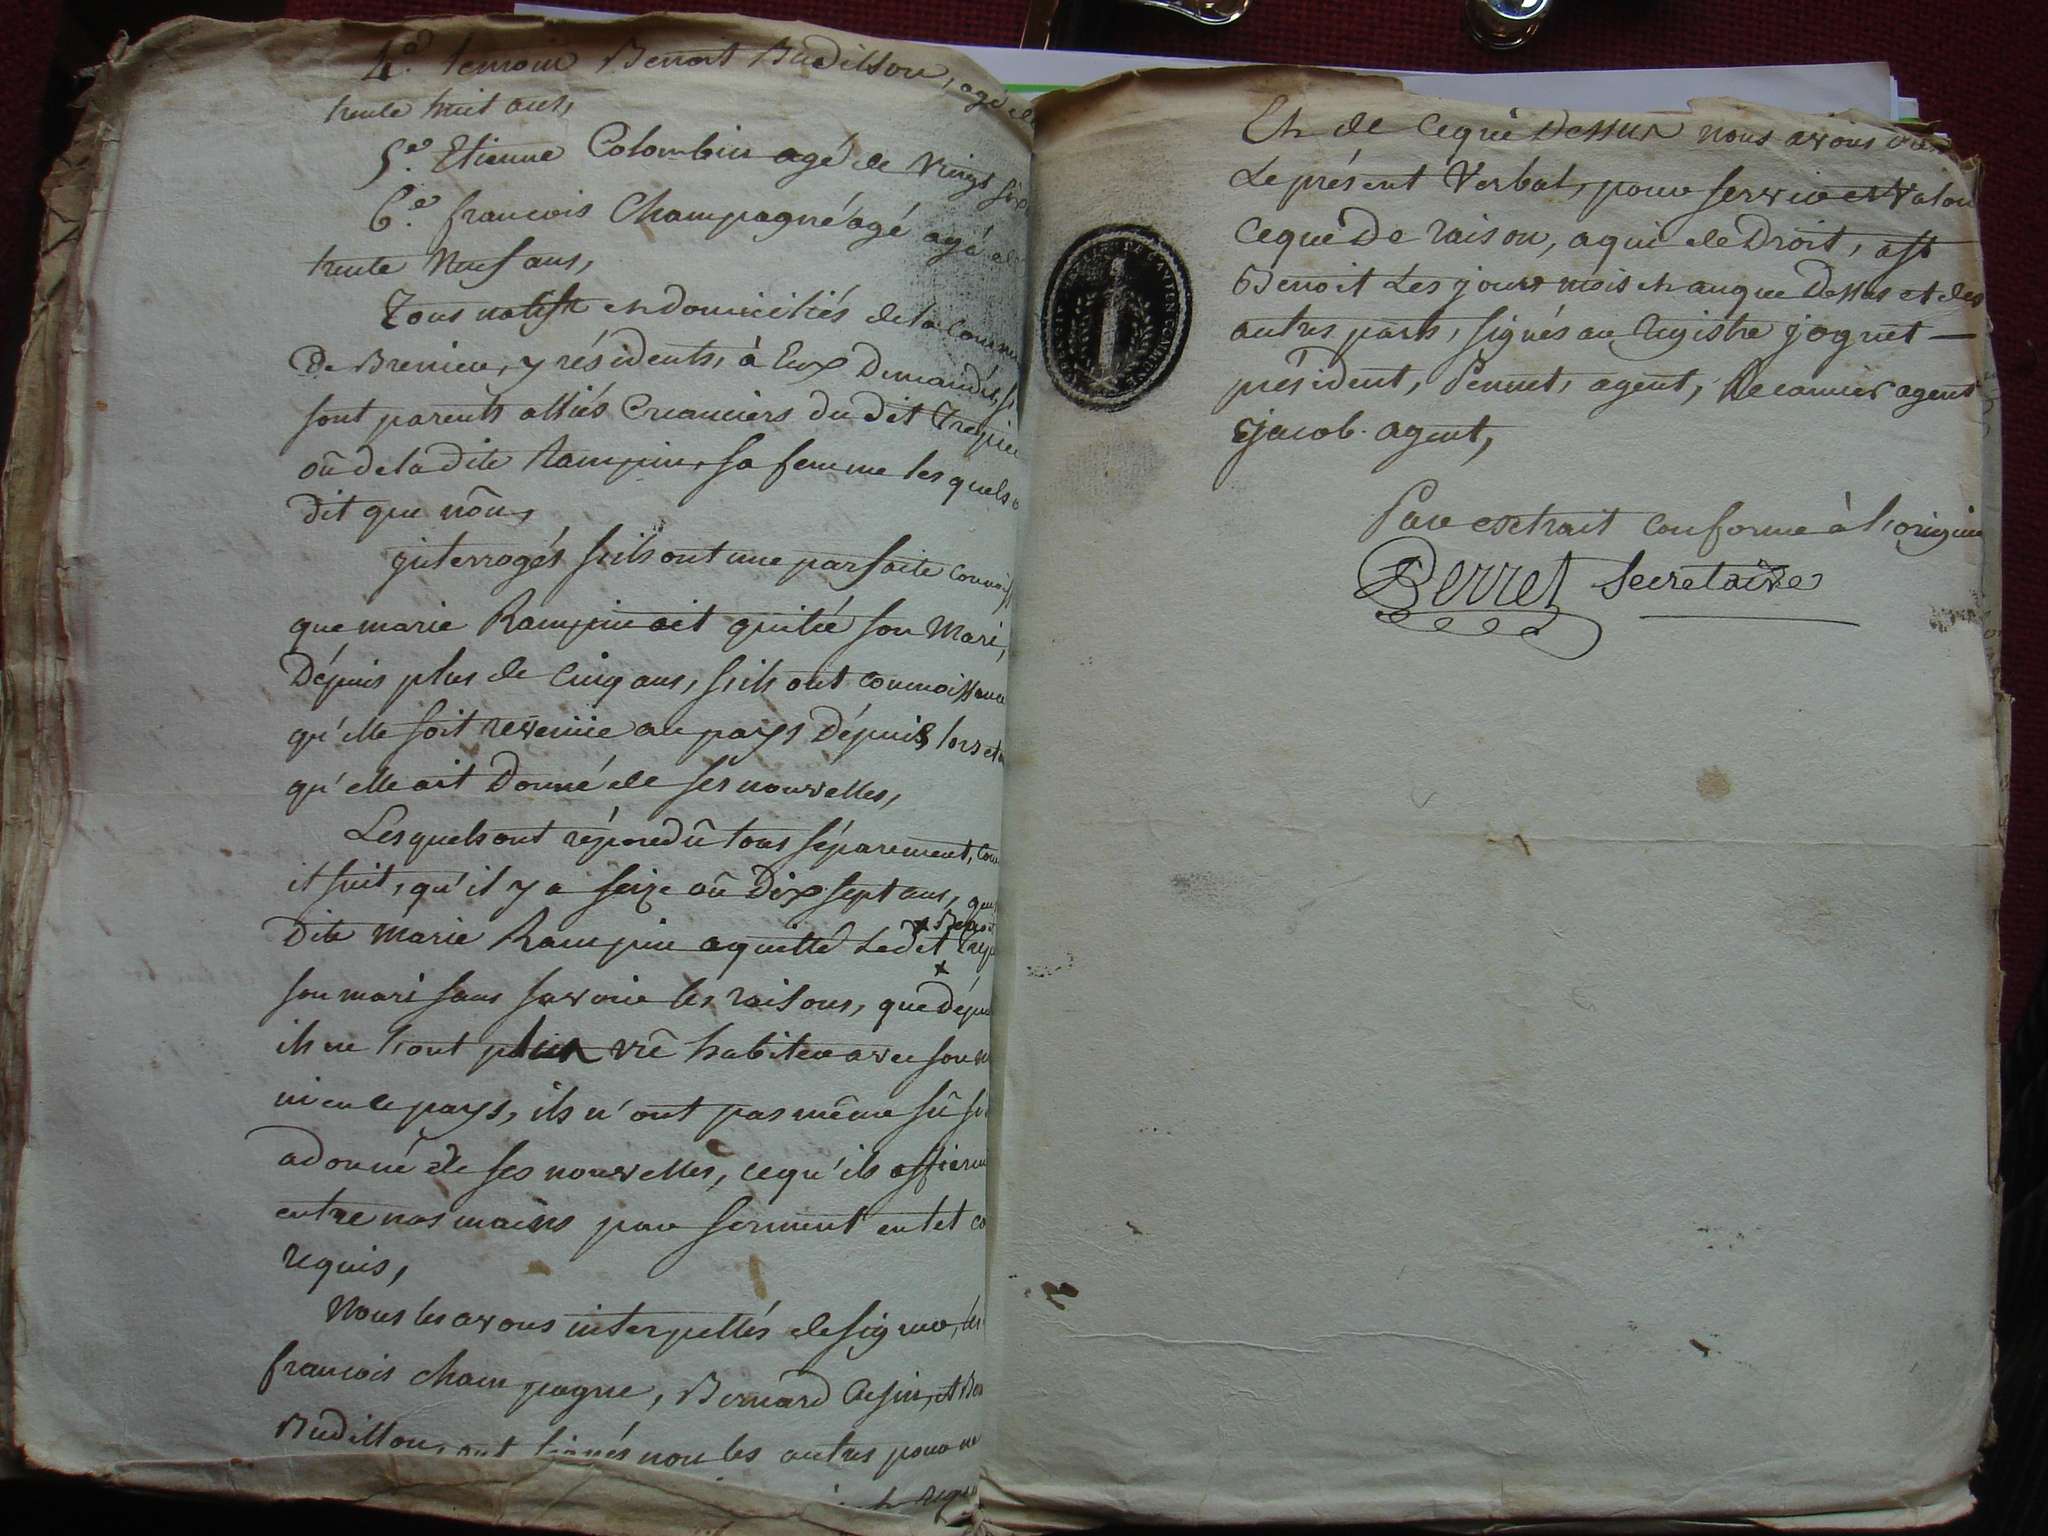 4.e temoin Benoit Budillon, agé de
trente huit ans,
5.e Etienne Colombin agé de vingt six
6.e francois Champagne agé agé de
trente Neuf ans,
Tous natifs et domiciliés de la Commu
De Brenieu, y résidents, à Eux Demandés, s'i
sont parents alliés Créanciers du dit
oû de la dite Rampin, sa femme les quels o
Dit que nôn,
interrogés s'ils ont une parfaite connoiss
que marie Rampin ait quitée son Mari,
Dépuis plus de Cinq ans, s'ils ont connoissance
qu'elle soit revenüe au pays Dépuis, lors et
qu'elle ait Donné de ses nouvelles,
Lesquels ont répondû tous séparement, Com
il suit, qu'il y a seize oû Dix sept ans, que
Dite Marie Rampin a quitté Ledit + Benoit
son mari sans savoir les raisons, que dépui
ils ne l'ont plus vûe habiter avec son m
ni en le pays, ils n'ont pas même sû si
a donné de ses nouvelles, ce qu'ils affirm
entre nos mains par serment en tel ca
requis,
Nous les avons interpellés de signer, les
francois champagne, Bernard et Ben
Budillon, ont signés non les autres pour ne
requis
Et de Ceque Dessus nous avons
Le présent Verbal, pour servir et valoir
Ceque De raison, a qui de Droit, a st
Benoit Les jour mois et an que Dessus et des
autres parts, signés au registre jognet —
président, Pennet, agent, Recamier agent
jacob agent,
Par extrait conforme à l'origin
Perret secretaire